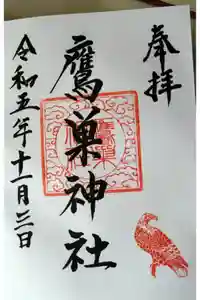 奉拝
鷹巣神社
令和五年十一月三日